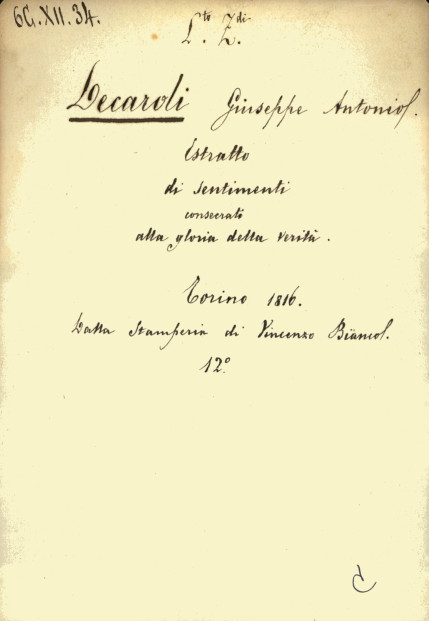 6C.XII.34.
Lto Zdi
L. Z.
Decaroli Giuseppe Antonio.
Estratto
di sentimenti
consecrato
alla gloria della verità.
Torino 1816.
Dalla Stamperia di Vincenzo Bianco.
12º